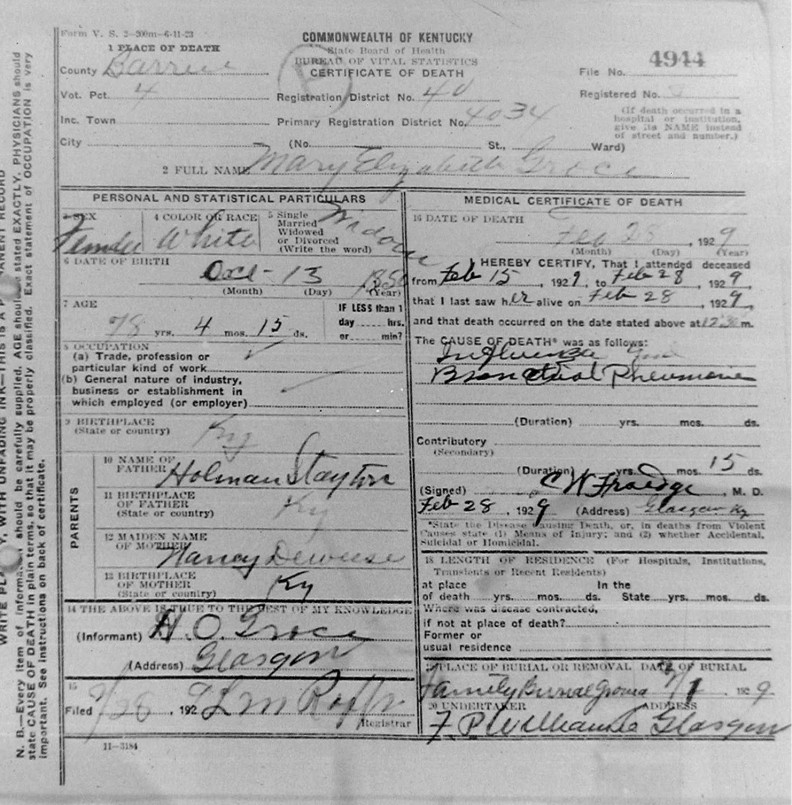 Form V. S. 2-200m-6-11-23
COMMONWEALTH OF KENTUCKY
State Board of Health
BUREAU OF VITAL STATISTICS
CERTIFICATE OF DEATH
1 PLACE OF DEATH
County Barren
File No. 4944
Vot. Pct. 4
Registration District No. 40
Registered No.
Inc. Town
Primary Registration District No. 4034
(If death occurred in a
hospital or institution,
give its NAME instead
of street and number.)
City (No. St., Ward)
2 FULL NAME Mary Elizabeth Groce
PERSONAL AND STATISTICAL PARTICULARS
3 SEX Female
4 COLOR OR RACE White
5 Single
Married
Widowed
or Divorced
(Write the word) Widow
6 DATE OF BIRTH Oct - 13 1850
(Month) (Day) (Year)
7 AGE
78 yrs. 4 mos. 15 ds.
IF LESS than 1
day hrs.
or min?
8 OCCUPATION
(a) Trade, profession or
particular kind of work
(b) General nature of industry,
business or establishment in
which employed (or employer)
9 BIRTHPLACE
(State or country) Ky
PARENTS
10 NAME OF
FATHER Holman Stayton
11 BIRTHPLACE
OF FATHER
(State or country) Ky
12 MAIDEN NAME
OF MOTHER Nancy Deweese
13 BIRTHPLACE
OF MOTHER
(State or country) Ky
14 THE ABOVE IS TRUE TO THE BEST OF MY KNOWLEDGE
(Informant) H. O. Groce
(Address) Glasgow
15
Filed 192
Registrar
11-3184
MEDICAL CERTIFICATE OF DEATH
16 DATE OF DEATH
Feb 28, 1929
(Month) (Day) (Year)
I HEREBY CERTIFY, That I attended deceased
from Feb 15, 1929, to Feb 28, 1929,
that I last saw her alive on Feb 28, 1929,
and that death occurred on the date stated above at 12:30 m.
The CAUSE OF DEATH* was as follows:
Influenza and
Bronchial Pneumonia
(Duration) yrs. mos. ds.
Contributory
(Secondary)
(Duration) yrs. mos. 15 ds.
(Signed) C W Froedge, M. D.
Feb 28, 1929 (Address) Glasgow Ky
*State the Disease Causing Death, or, in deaths from Violent
Causes state (1) Means of Injury; and (2) whether Accidental,
Suicidal or Homicidal.
18 LENGTH OF RESIDENCE (For Hospitals, Institutions,
Transients or Recent Residents)
at place In the
of death yrs. mos. ds. State yrs. mos. ds.
Where was disease contracted,
if not at place of death?
Former or
usual residence
PLACE OF BURIAL OR REMOVAL DATE OF BURIAL
Family Burial Ground 1929
20 UNDERTAKER ADDRESS
F. P. Williams Glasgow
WRITE PLAINLY, WITH UNFADING INK—THIS IS A PERMANENT RECORD
N. B.—Every item of information should be carefully supplied. AGE should be stated EXACTLY. PHYSICIANS should
state CAUSE OF DEATH in plain terms, so that it may be properly classified. Exact statement of OCCUPATION is very
important. See instructions on back of certificate.